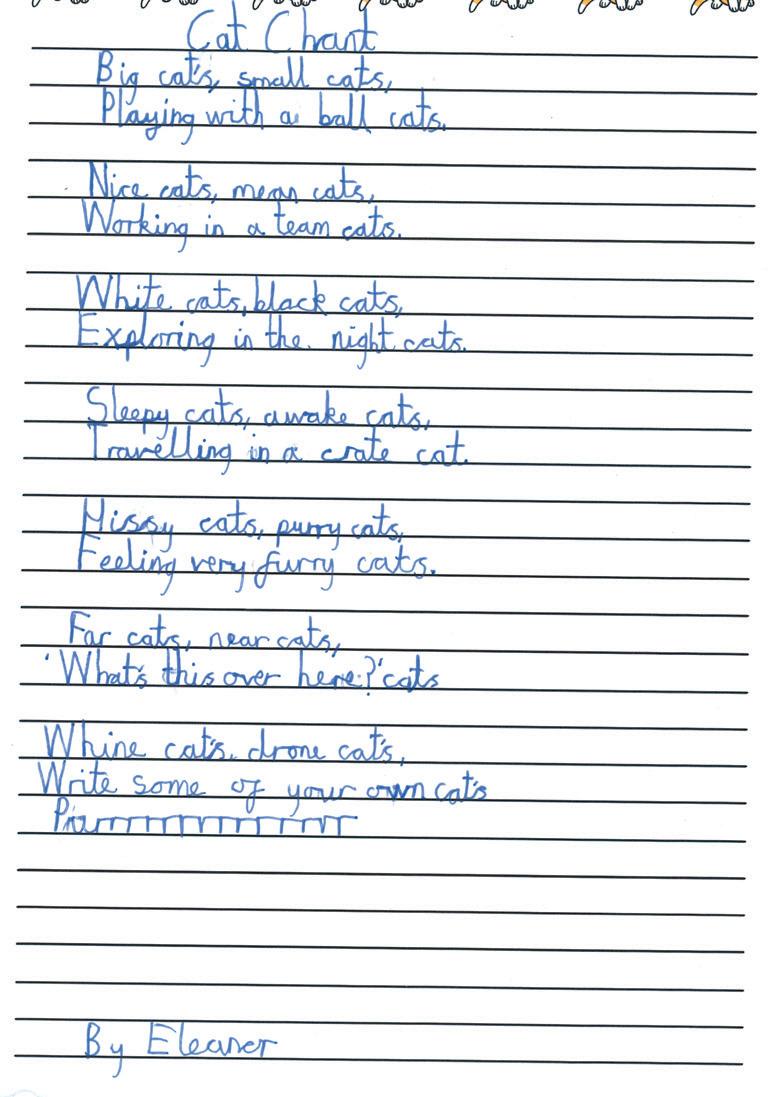 Cat Chant
Big cats, small cats,
Playing with a ball cats.
Nice cats, mean cats,
Working in a team cats.
White cats, black cats,
Exploring in the night cats.
Sleepy cats, awake cats,
Travelling in a crate cat.
Hissy cats, purry cats,
Feeling very furry cats.
Far cats, near cats,
'What's this over here?' cats
Whine cats. drone cats,
Write some of your own cats
Purrrrrrrrrrrrrr
By Eleanor